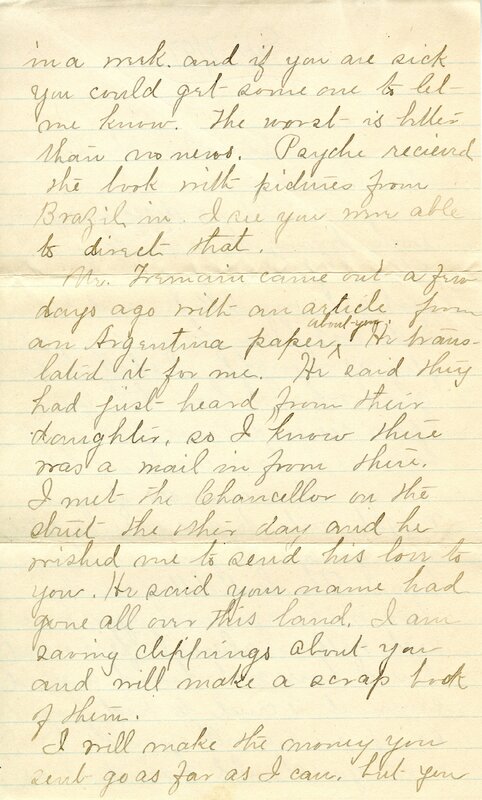 in a week. and if you are sick
you could get some one to let
me know. The worst is better
than no news. Psyche recieved
the book with pictures from
Brazil, in. I see you were able
to direct that.
Mr. Tremain came out a few
days ago with an article from
an Argentina paper, about you. He trans-
lated it for me. He said they
had just heard from their
daughter, so I know there
was a mail in from there.
I met the Chancellor on the
street the other day and he
wished me to send his love to
you. He said your name had
gone all over this land. I am
saving clippings about you
and will make a scrap book
of them.
I will make the money you
sent go as far as I can. but you